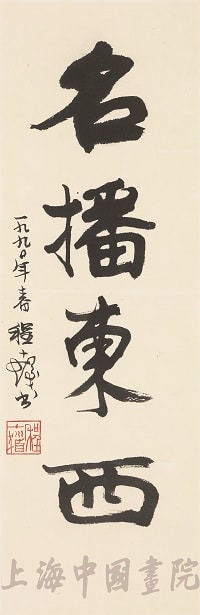 名播東西
一九九〇年春 程十髮書
程
十髮
上海中國畫院